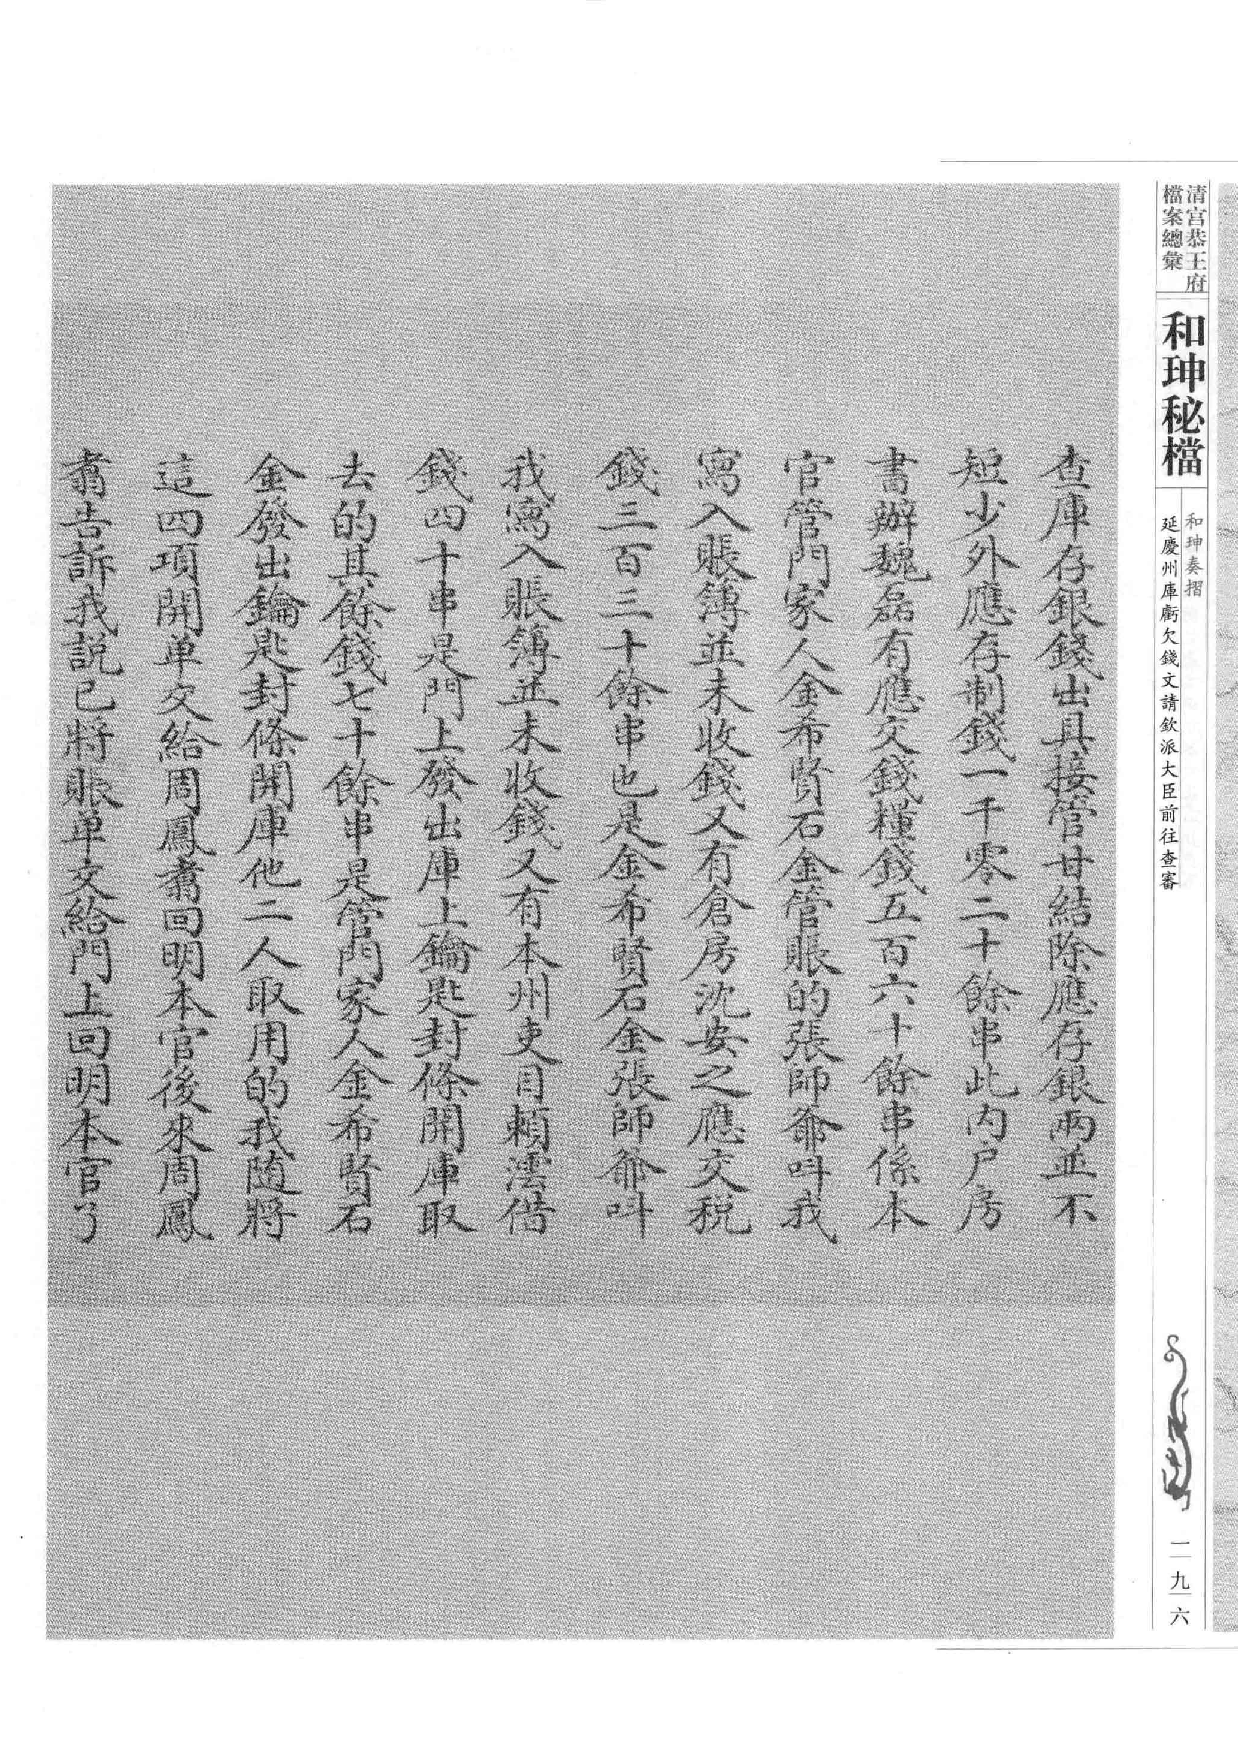 清宫恭王府
檔案總彙
和珅秘檔
和珅奏摺
延慶州庫虧欠錢文請欽派大臣前往查審
查庫存銀錢出具接管甘結除應存銀兩並不
短少外應存制錢一千零二十餘串此内户房
書辦魏磊有應交錢糧錢五百六十餘串係本
官管門家人金希賢石金管賬的張師爺叫我
寫入賬簿並未收錢又有倉房沈安之應交税
錢三百三十餘串也是金希賢石金張師爺叫
我寫入賬簿並未收錢又有本州吏目賴澐借
錢四十串是門上發出庫上鑰匙封條開庫取
去的其餘錢七十餘串是管門家人金希賢石
金發出鑰匙封條開庫他二人取用的我随將
這四項開单交給周鳳翥回明本官後來周鳳
翥告訴我説已將賬单交給門上回明本官了
一九六